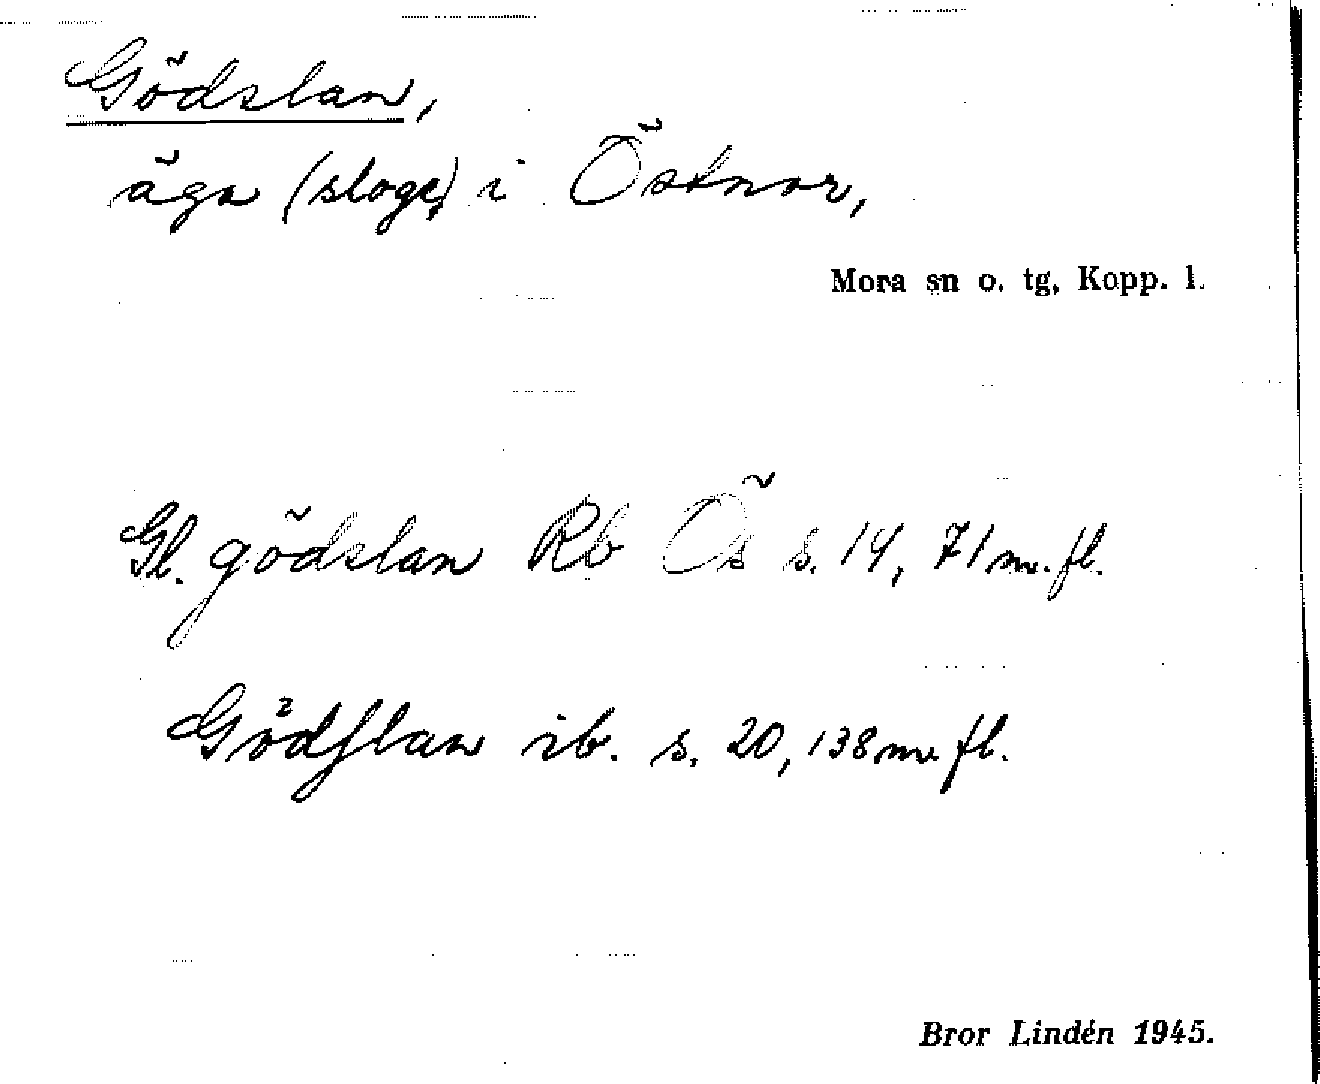 Gödslan,
äga (sloge) i Östnor,
Mora sn o. tg, Kopp. l.
Gl. gödslan Rb Ös s. 14, 71 m. fl.
Gödſlan ib. s. 20, 138 m. fl.
Bror Lindén 1945.